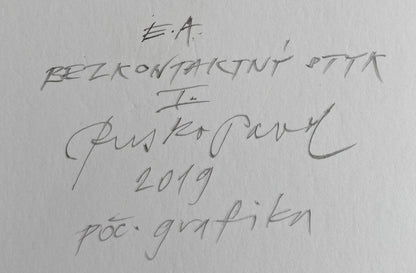 E.A.
BEZKONTAKTNÝ STYK
I.
Rusko Pavol
2019
poč. grafika